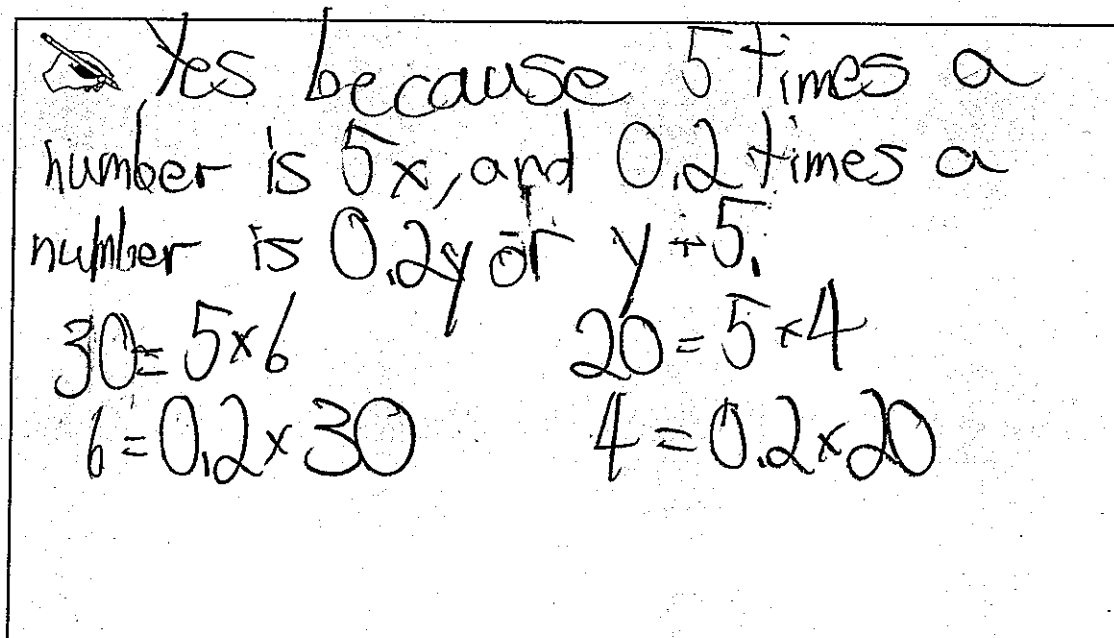 Yes because 5 times a
number is 5x, and 0.2 times a
number is 0.2y or y÷5.
30=5×6 20=5×4
6=0.2×30 4=0.2×20